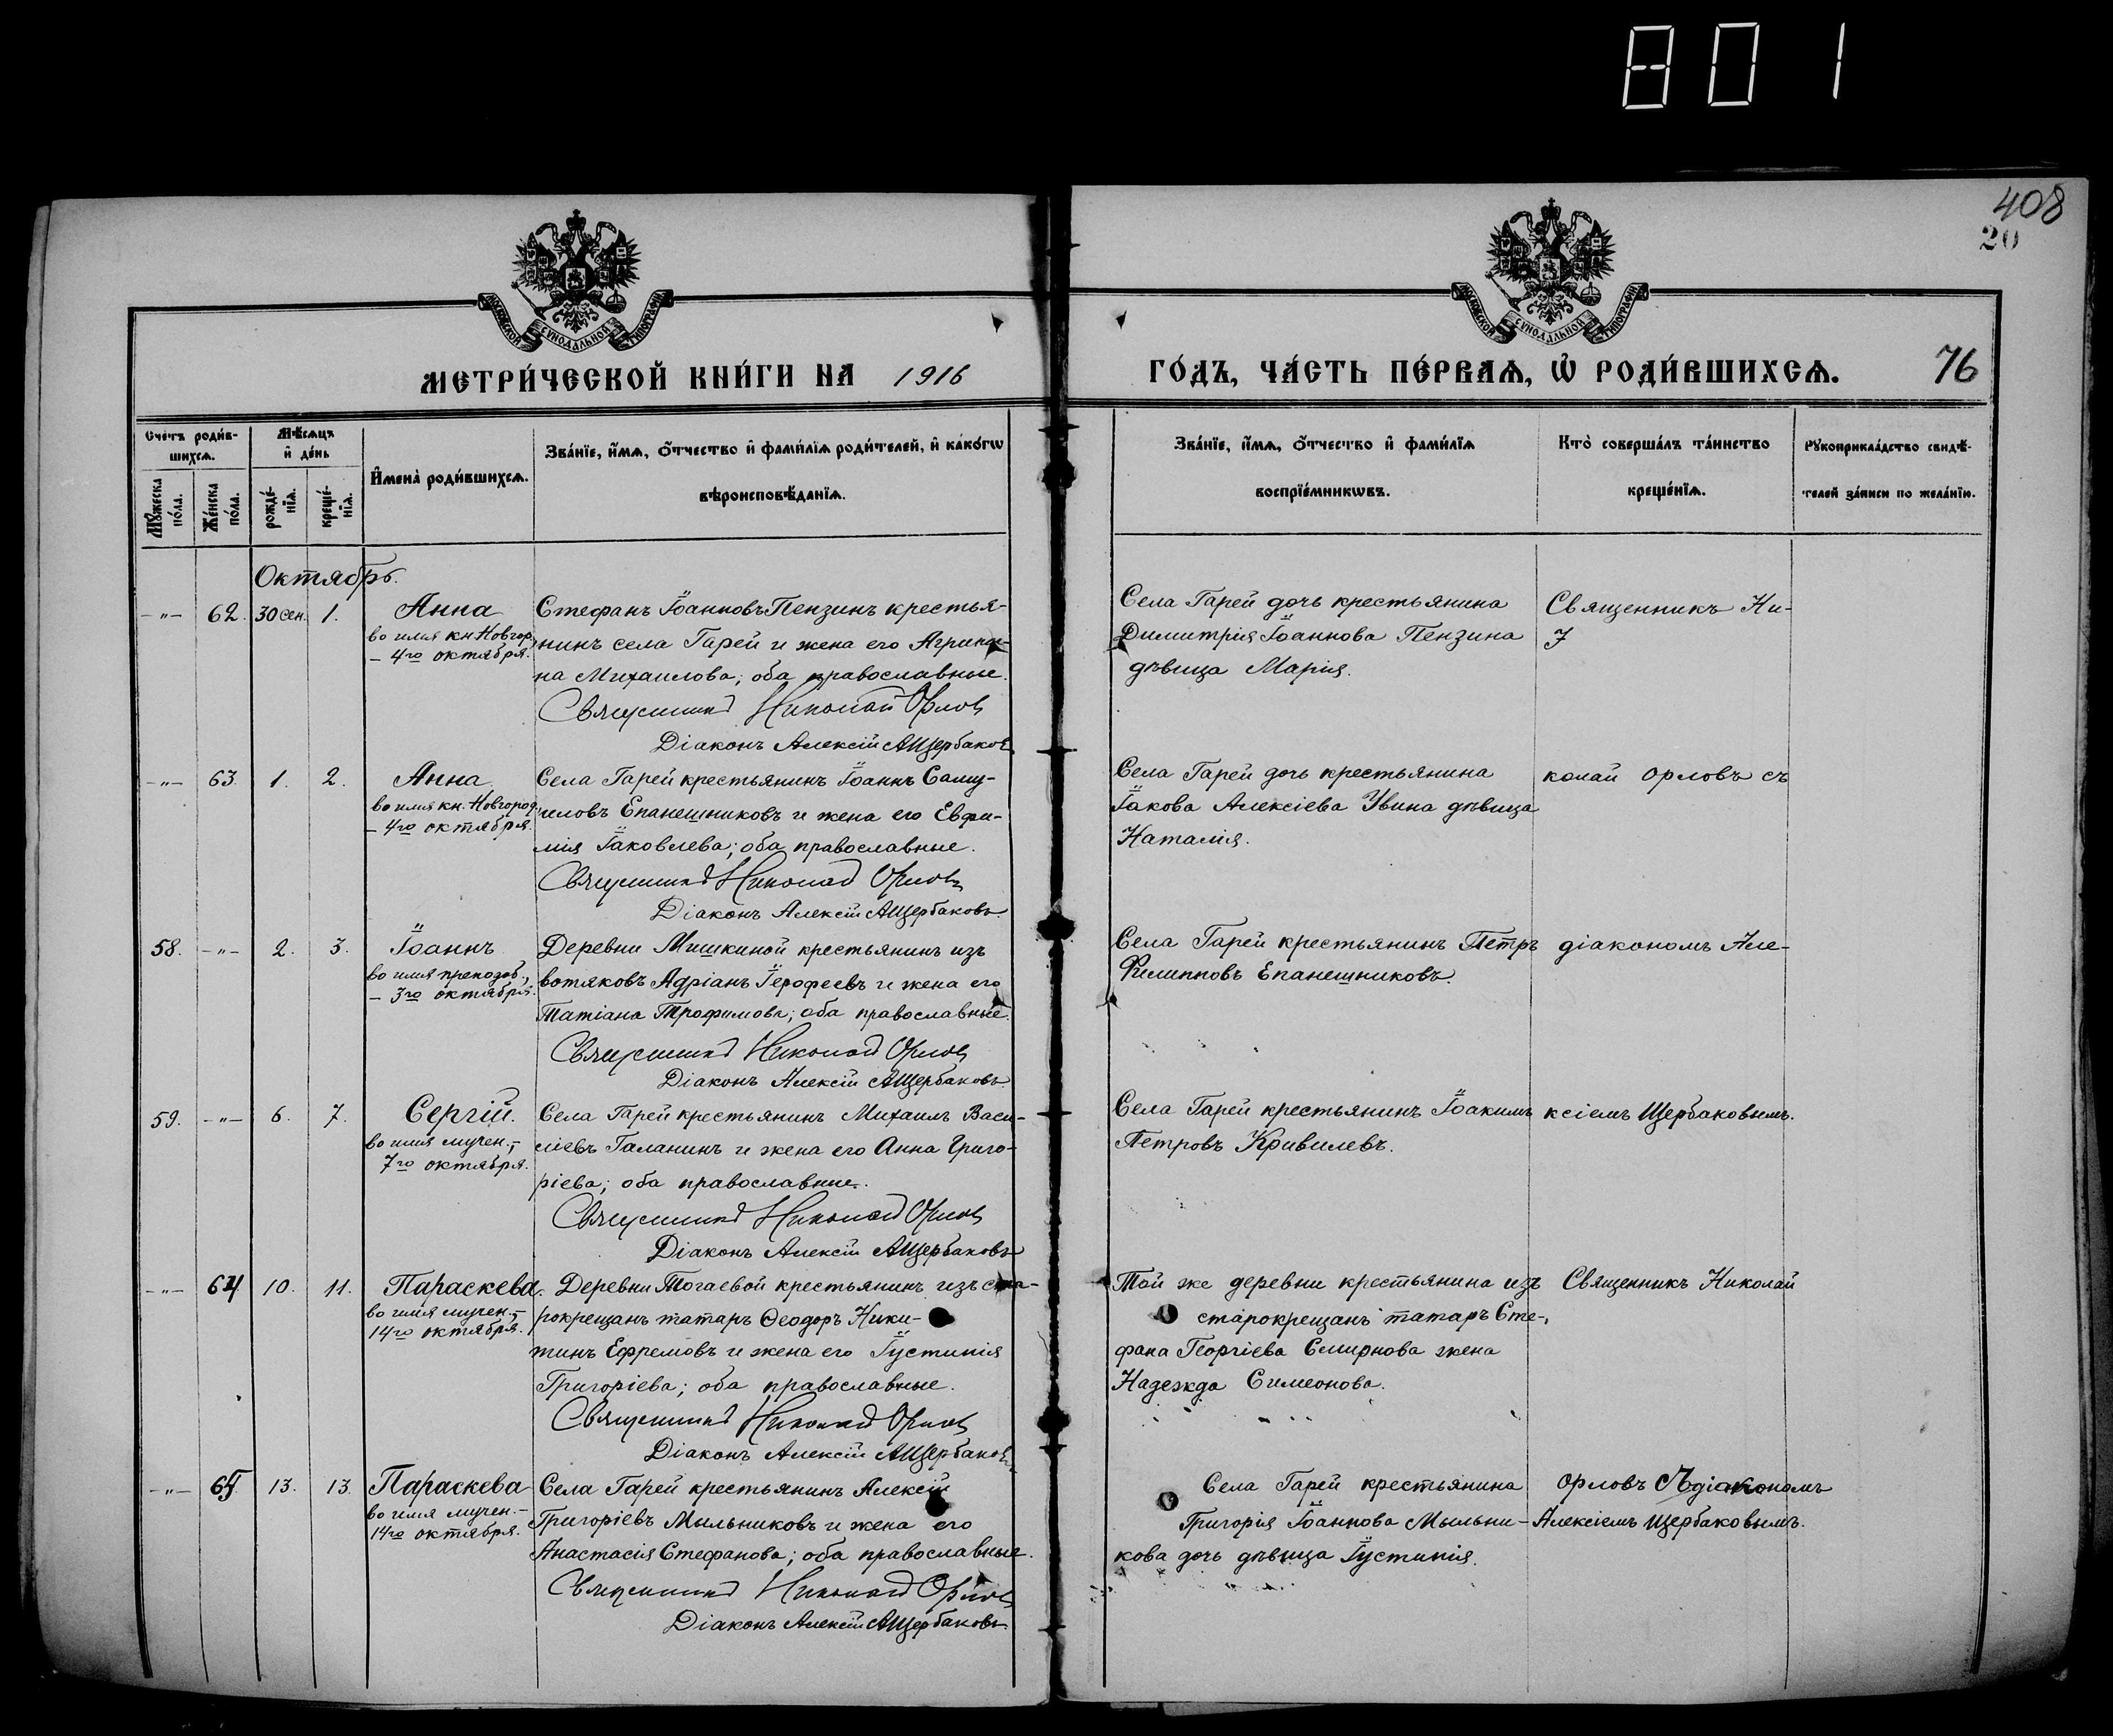 801
408
20
МОСКОВСКОЙ СУНОДАЛЬНОЙ ТИПОГРАФІИ
МОСКОВСКОЙ СУНОДАЛЬНОЙ ТИПОГРАФІИ
МЕТРИ́ЧЕСКОЙ КНИ́ГИ НА 1916
ГО́ДЪ, ЧА́СТЬ ПЕ́РВАѦ, Ѽ РОДИ́ВШИХСѦ. 76
Счетъ роди́в-
шихсѧ.
Мѣ́сѧцъ
и҆ де́нь
Мꙋ́жеска по́ла.
Же́нска по́ла.
рожде́-
нїѧ.
креще́-
нїѧ.
И҆мена̀ роди́вшихсѧ.
Зва́нїе, и҆́мѧ, ѻ҆́тчество и҆ фами́лїѧ роди́телей, и҆ како́гѡ
вѣроисповѣ́данїѧ.
Зва́нїе, и҆́мѧ, ѻ҆́тчество и҆ фами́лїѧ
воспрїе́мникѡвъ.
Кто̀ соверша́лъ та́инство
креще́нїѧ.
Рꙋкоприкла́дство свидѣ́-
телей за́писи по жела́нїю.
Октябрь.
-"- 62. 30 сен. 1. Анна
во имя кн. Новгор.,
- 4го октября.
Стефанъ Іоанновъ Пензинъ крестья-
нинъ села Гарей и жена его Агрипи-
на Михаилова; оба православные.
Священникъ Николай Орловъ
Діаконъ Алексій Щербаковъ
Села Гарей дочь крестьянина
Димитрія Іоаннова Пензина
дѣвица Марія.
Священникъ Ни-
-"- 63. 1. 2. Анна
во имя кн. Новгород.,
- 4го октября.
Села Гарей крестьянинъ Іоаннъ Саму-
иловъ Епанешниковъ и жена его Евфи-
мія Іаковлева; оба православные.
Священникъ Николай Орловъ
Діаконъ Алексій Щербаковъ.
Села Гарей дочь крестьянина
Іакова Алексіева Увина дѣвица
Наталія.
колай Орловъ съ
58. -"- 2. 3. Іоаннъ
во имя преподоб.,
- 3го октября.
Деревни Мишкиной крестьянинъ изъ
вотяковъ Адріанъ Іерофеевъ и жена его
Татіана Трофимова; оба православные.
Священникъ Николай Орловъ
Діаконъ Алексій Щербаковъ
Села Гарей крестьянинъ Петръ
Филипповъ Епанешниковъ.
діакономъ Але-
59. -"- 6. 7. Сергій.
во имя мучен.,-
7го октября.
Села Гарей крестьянинъ Михаилъ Васи-
ліевъ Галанинъ и жена его Анна Григо-
ріева; оба православные.
Священникъ Николай Орловъ
Діаконъ Алексій Щербаковъ
Села Гарей крестьянинъ Іоакимъ
Петровъ Кривилевъ.
ксіемъ Щербаковымъ.
-"- 64 10. 11. Параскева.
во имя мучен.,-
14го октября.
Деревни Тогаевой крестьянинъ изъ ста-
рокрещанъ татаръ Ѳеодоръ Ники-
тинъ Ефремовъ и жена его Іустинія
Григоріева; оба православные.
Священникъ Николай Орловъ
Діаконъ Алексій Щербаковъ
Той же деревни крестьянина изъ
старокрещанъ татаръ Сте-
фана Георгіева Смирнова жена
Надежда Симеонова.
Священникъ Николай
-"- 65. 13. 13. Параскева
во имя мучен.-
14го октября.
Села Гарей крестьянинъ Алексій
Григоріевъ Мыльниковъ и жена его
Анастасія Стефанова; оба православные.
Священникъ Николай Орловъ
Діаконъ Алексій Щербаковъ
Села Гарей крестьянина
Григорія Іоаннова Мыльни-
кова дочь дѣвица Іустинія.
Орловъ съ діакономъ
Алексіемъ Щербаковымъ.